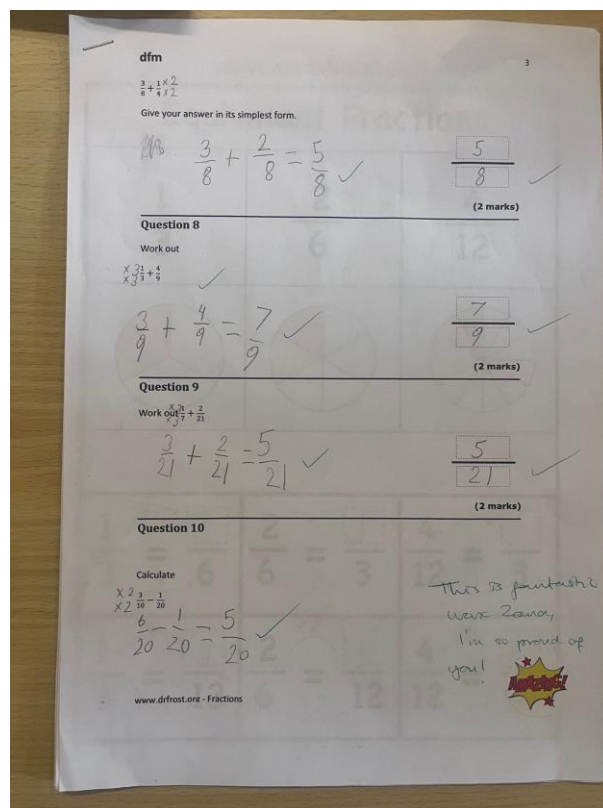 dfm
3
3/8 + 1/4 ×2 ×2
Give your answer in its simplest form.
3/8 + 2/8 = 5/8 ✓
5/8 ✓
(2 marks)
Question 8
Work out
×3 ×3 1/3 + 4/9 ✓
3/9 + 4/9 = 7/9 ✓
7/9 ✓
(2 marks)
Question 9
Work out ×3 ×3 1/7 + 2/21
3/21 + 2/21 = 5/21 ✓
5/21 ✓
(2 marks)
Question 10
Calculate
×2 ×2 3/10 - 1/20
6/20 - 1/20 = 5/20 ✓
This is fantastic
I'm so proud of
you!
AMAZING!
www.drfrost.org - Fractions